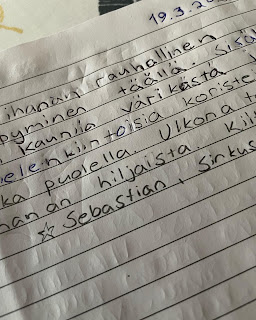 19.3.20
ihanain rauhallinen
täällä. Sisä
kaunita värikästä
mielenkiintoisia koriste
ka puolella. Ulkona t
han on hiljaista. Kiit
☆ Sebastian, Sinkus